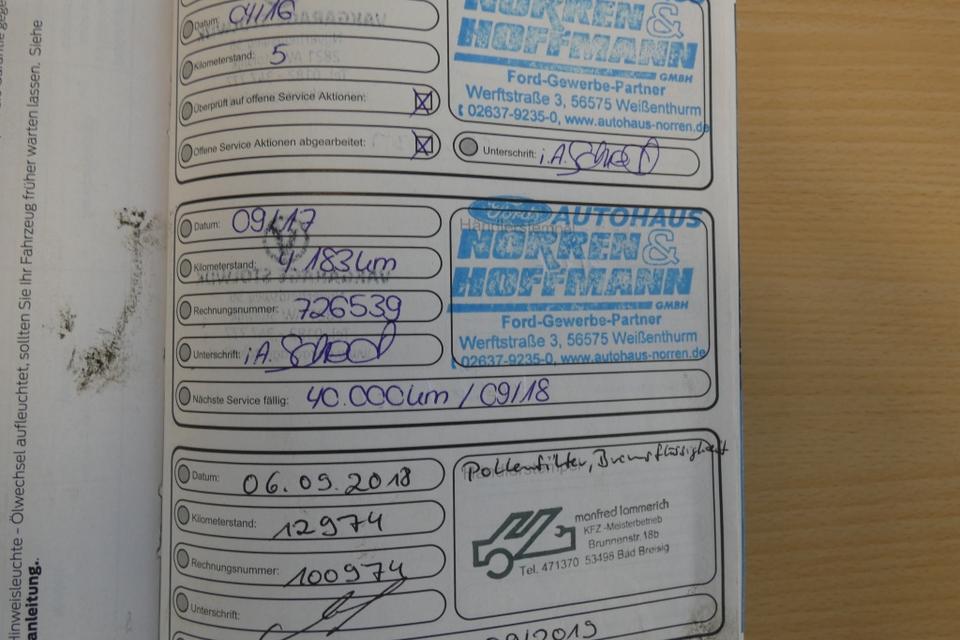 Datum: 04/16
Kilometerstand: 5
Überprüft auf offene Service Aktionen: ☒
Offene Service Aktionen abgearbeitet: ☒
NORREN &
HOFFMANN
GMBH
Ford-Gewerbe-Partner
Werftstraße 3, 56575 Weißenthurm
02637-9235-0, www.autohaus-norren.de
Unterschrift: i.A.
Datum: 09/17
Kilometerstand: 4.183km
Rechnungsnummer: 726539
Unterschrift: i.A.
Nächste Service fällig: 40.000km / 09/18
Händlerstempel
Ford AUTOHAUS
NORREN &
HOFFMANN
GMBH
Ford-Gewerbe-Partner
Werftstraße 3, 56575 Weißenthurm
02637-9235-0, www.autohaus-norren.de
Datum: 06.09.2018
Kilometerstand: 12974
Rechnungsnummer: 100974
Unterschrift:
Pollenfilter, Bremsflüssigkeit
manfred lammerich
KFZ-Meisterbetrieb
Brunnenstr.18b
Tel. 471370 53498 Bad Breisig
09/2019
Hinweisleuchte - Ölwechsel aufleuchtet, sollten Sie Ihr Fahrzeug früher warten lassen. Siehe
anleitung.